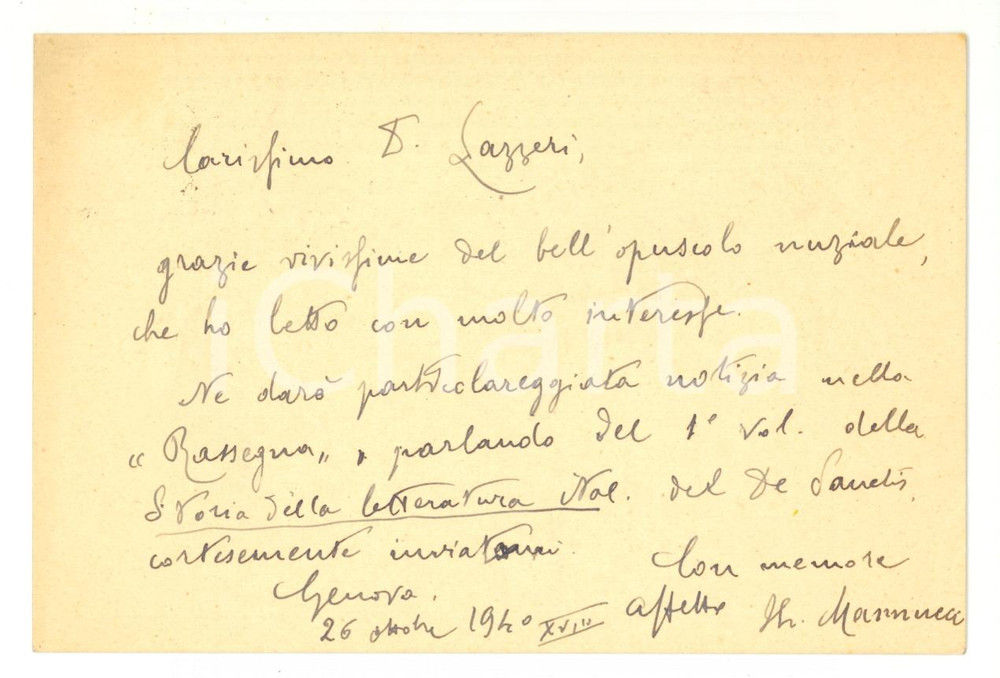 Carissimo D. Lazzeri,
grazie vivissime del bell'opuscolo nuziale,
che ho letto con molto interesse.
Ne darò particolareggiata notizia nella
"Rassegna", parlando del 1° vol. della
Storia della letteratura ital. del De Sanctis,
cortesemente inviatomi.
Con memore
Genova.
affetto
26 ottobre 1940 XVIII
Mannucci
iCharta